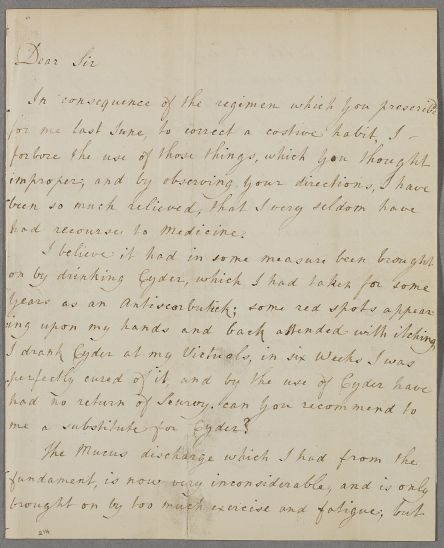 Dear Sir
In consequence of the regimen which you prescrib'd
for me last June, to correct a costive habit, I –
forbore the use of those things, which you thought
improper; and by observing your directions, I have
been so much relieved, that I very seldom have
had recourse to Medicine.
I believe it had in some measure been brought
on by drinking Cyder, which I had taken for some
years as an Antiscorbutick; some red spots appear-
ing upon my hands and back attended with itching
I drank Cyder at my Victuals, in six weeks I was
perfectly cured of it and by the use of Cyder have
had no return of Scurvy. can you recommend to
me a substitute for Cyder?
The Mucus discharge which I had from the
fundament, is now very inconsiderable, and is only
brought on by too much exercise and fatigue, but